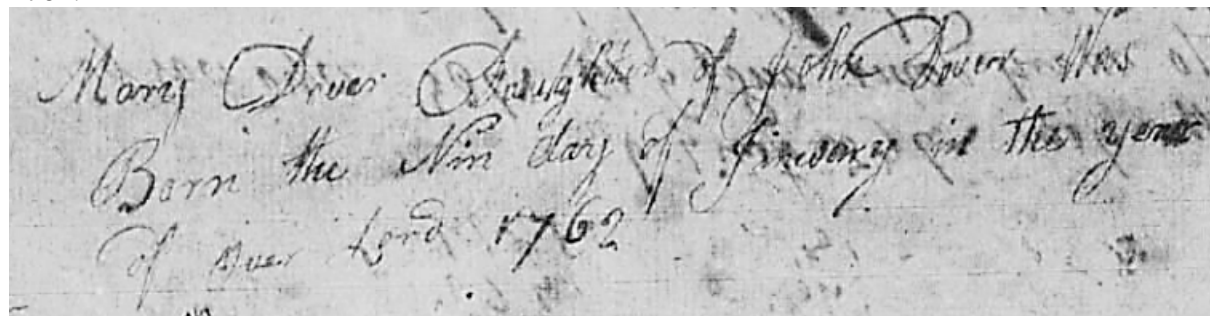 Mary Driver Daughter of John Driver Was
Born the Nin day of Jinwary in the year
of ouer Lord 1762